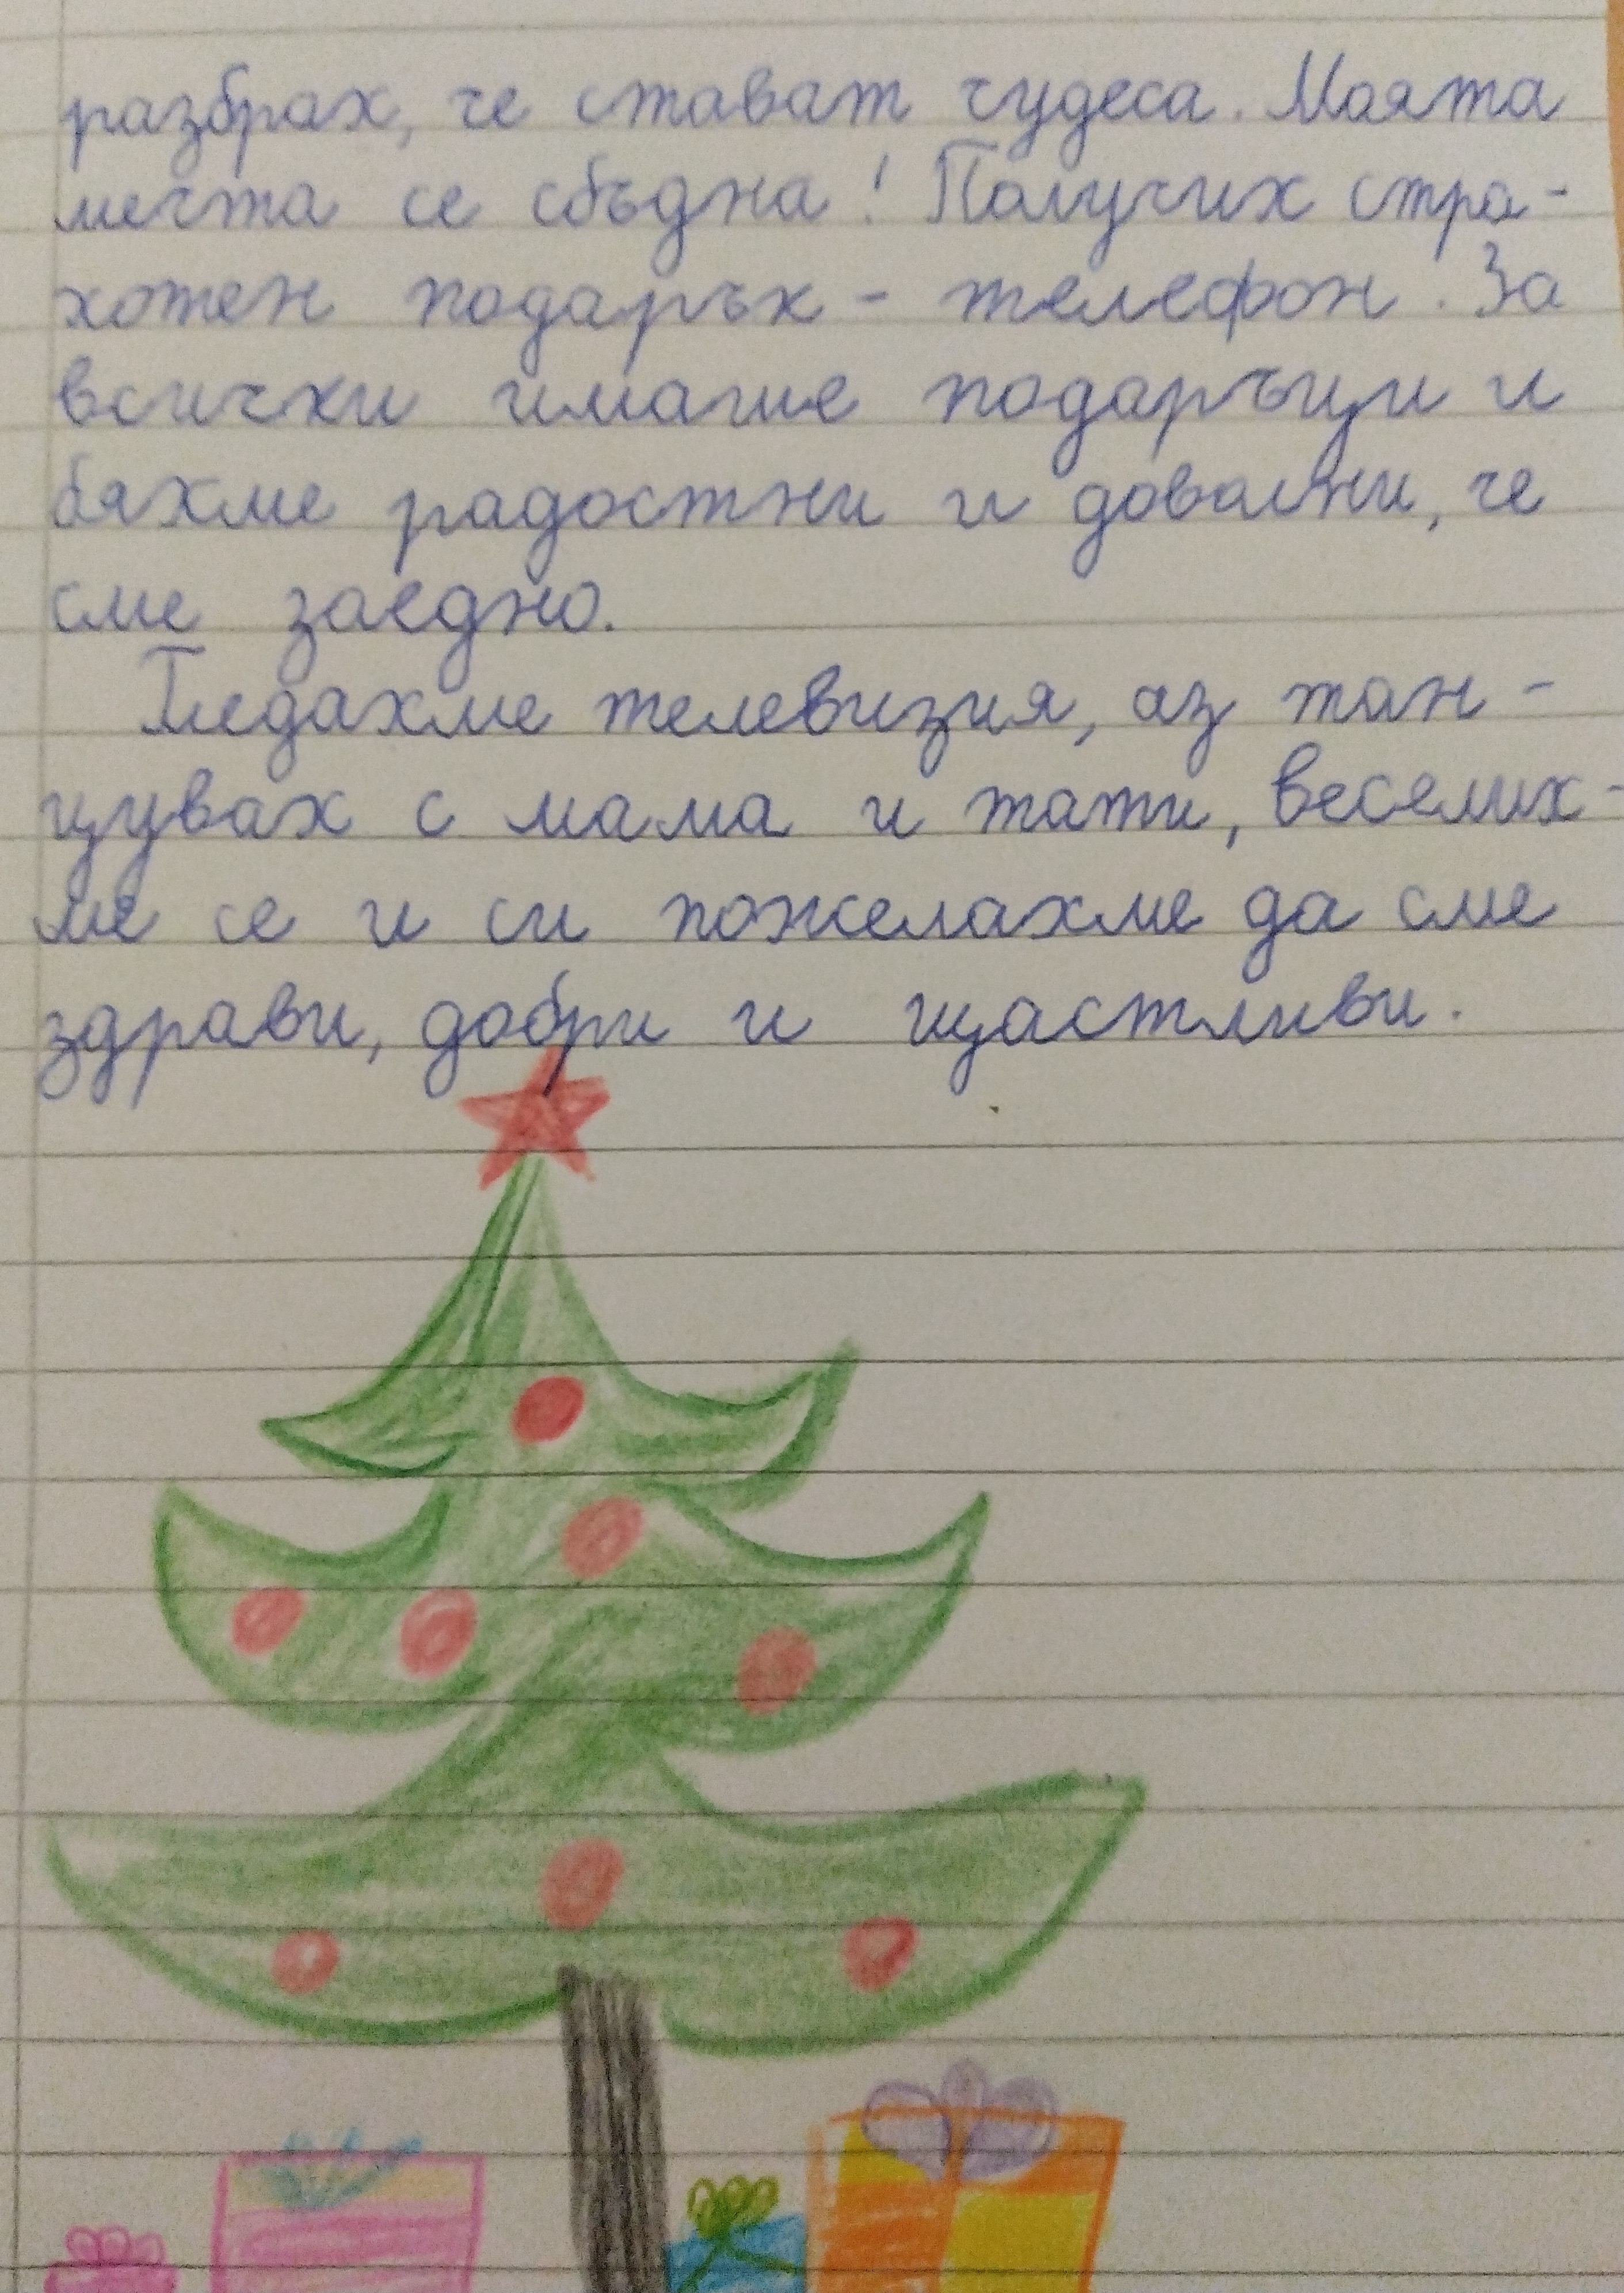 разбрах, че стават чудеса. Моята
мечта се сбъдна! Получих стра-
хотен подарък - телефон. За
всички имаше подаръци и
бяхме радостни и доволни, че
сме заедно.
Гледахме телевизия, аз тан-
цувах с мама и тати, веселих-
ме се и си пожелахме да сме
здрави, добри и щастливи.